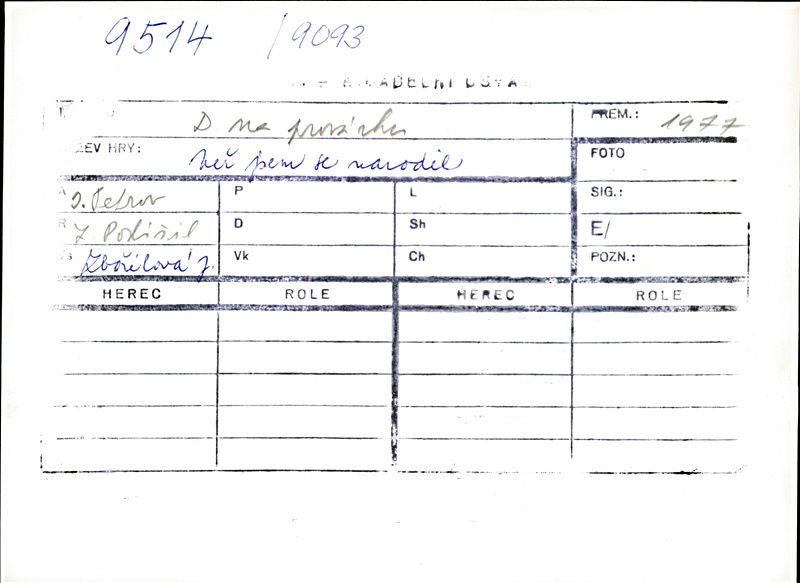 9514 /9093
D na provázku PREM.: 1977
ZEV HRY: Než jsem se narodil FOTO
A I. Petrov P L SIG.:
R Z Pospíšil D Sh E/
Zbořilová J. Vk Ch POZN.:
HEREC ROLE HEREC ROLE